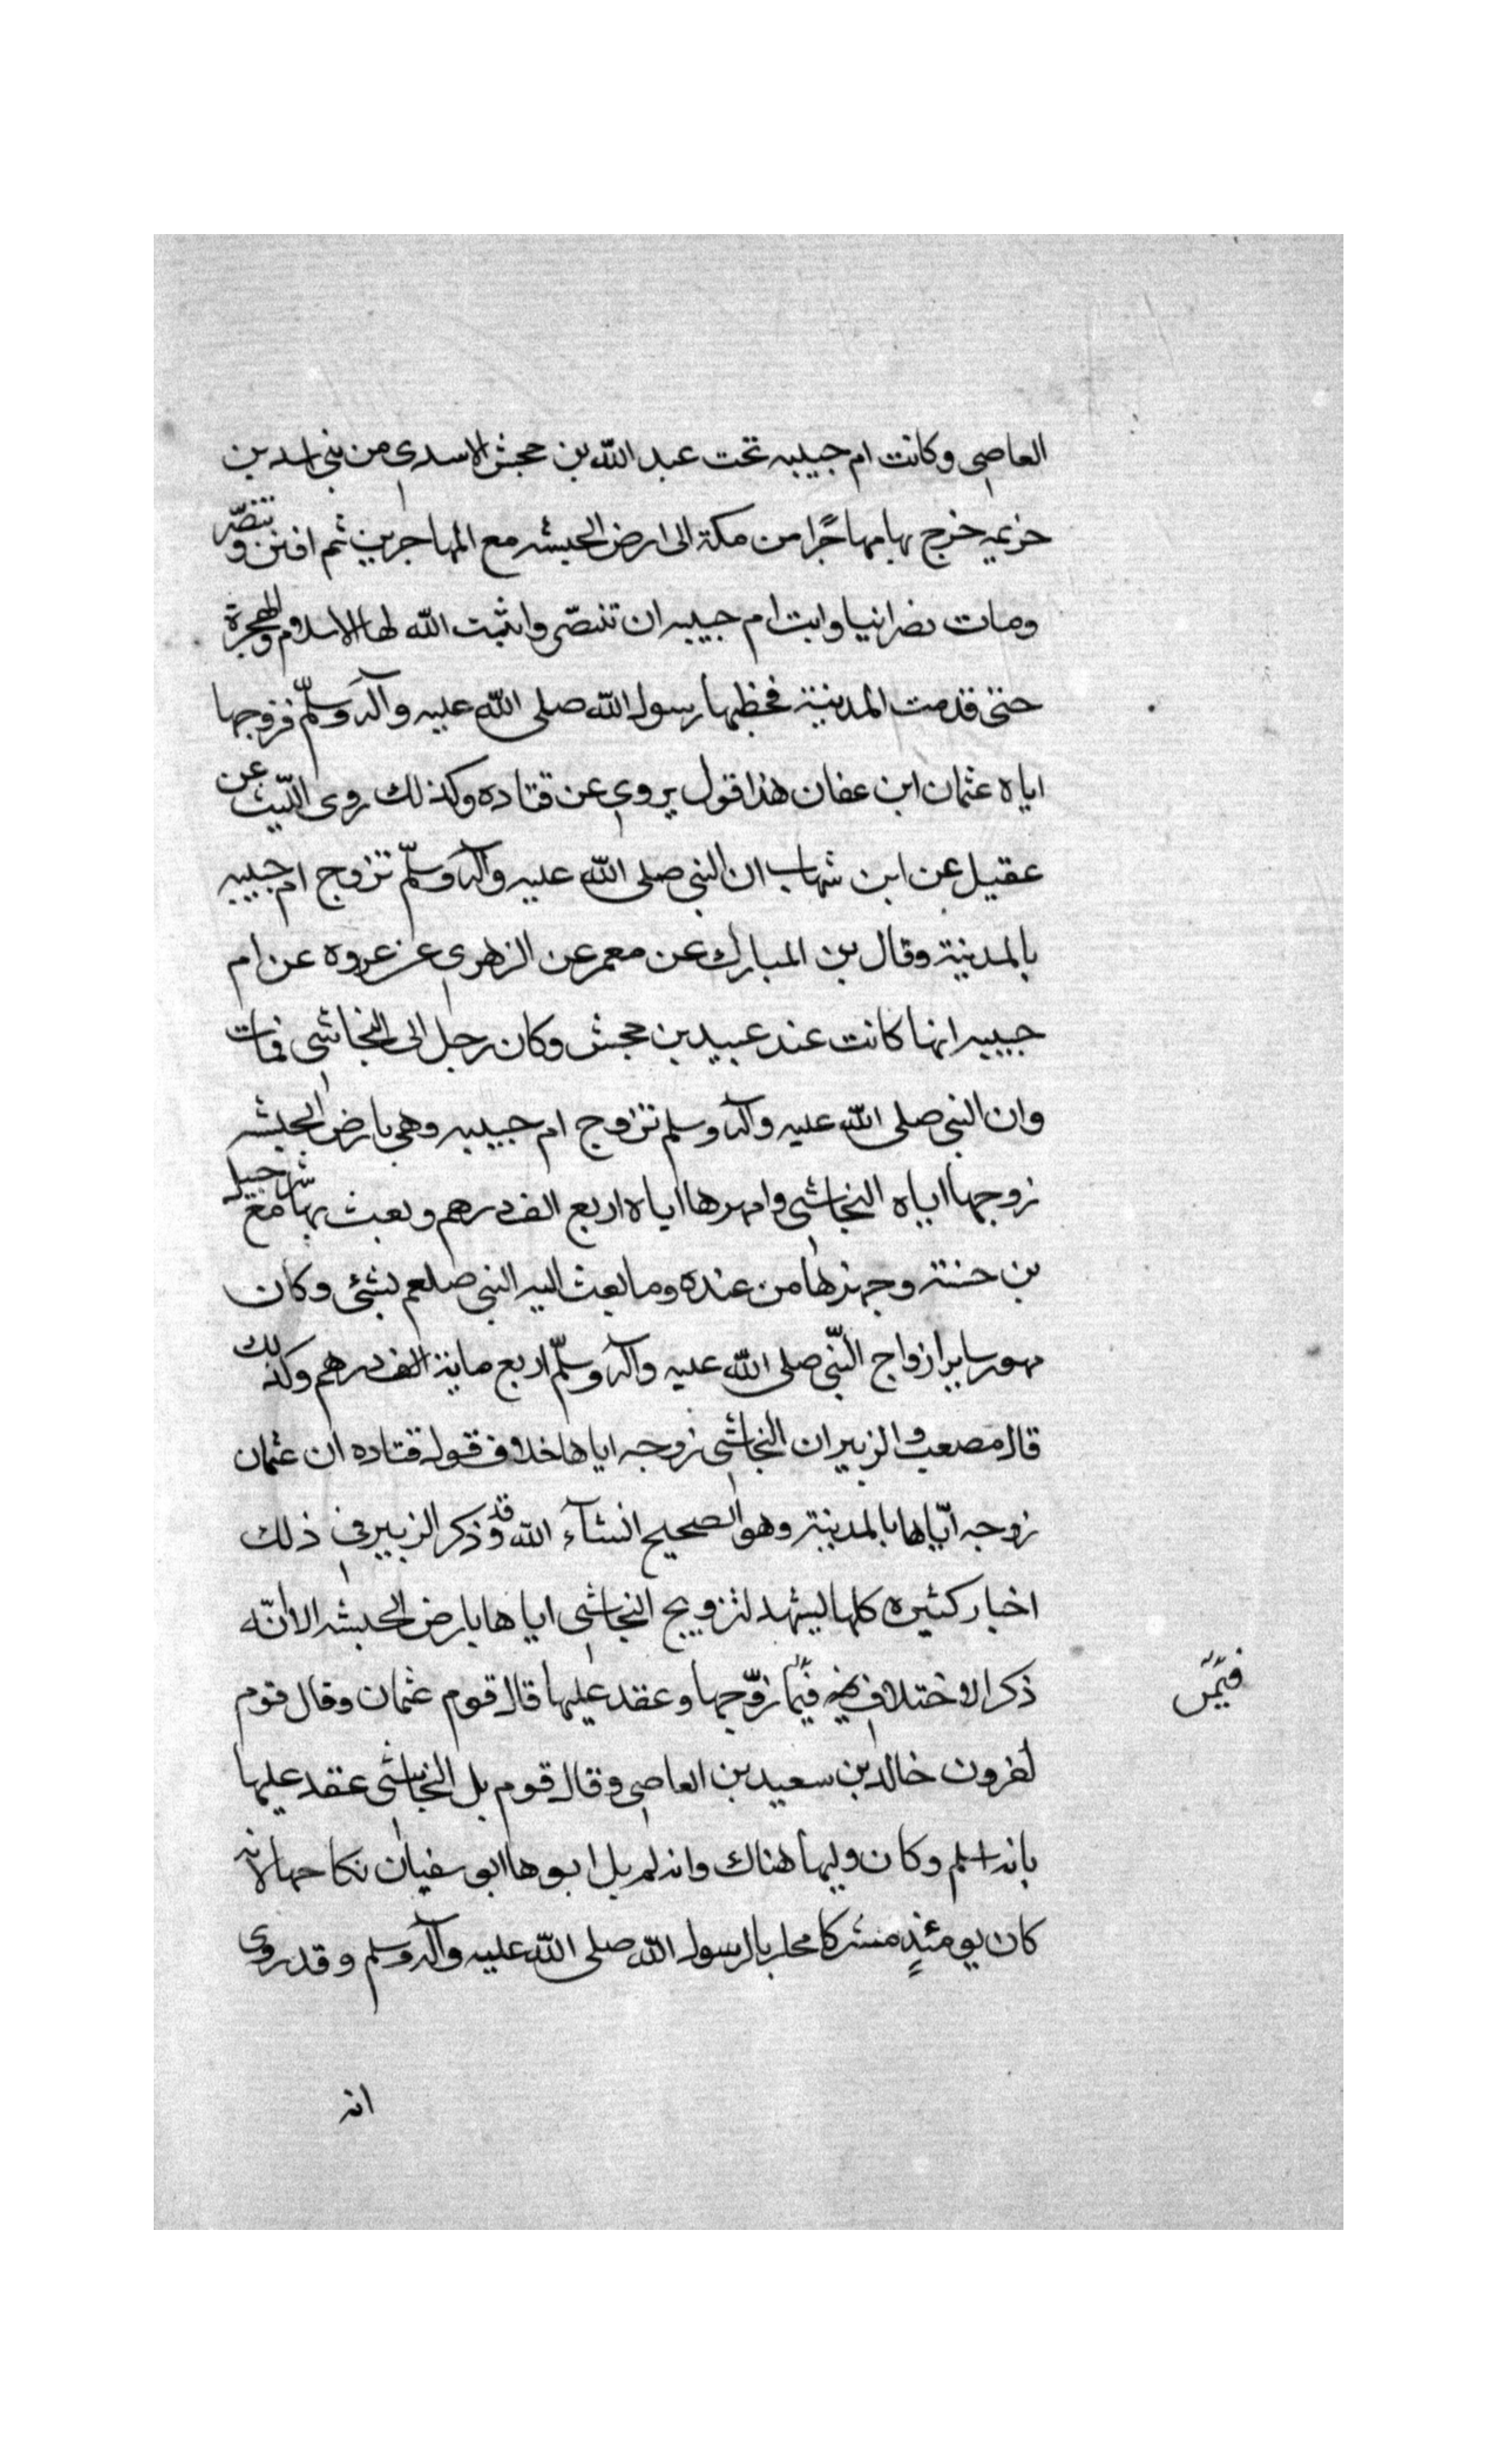 العاصى وكانت ام حبيبه تحت عبد الله بن جحش الاسدى من بنى اسد بن
خزيمه خرج بها مهاجرًا من مكة الى ارض الحبشه مع المهاجرين ثم افتتن وتنصّر
ومات نصرانيا وابت ام حبيبه ان تنصّر واثبت الله لها الاسلام والهجرة
حتى قدمت المدينة فخطبها رسول الله صلى الله عليه وآله وسلّم فزوجها
اياه عثمان ابن عفان هذا قول يروى عن قتاده وكذلك روى اللّيث عن
عقيل عن ابن شهاب ان النبى صلى الله عليه وآله وسلّم تزوج ام حبيبه
بالمدينة وقال بن المبارك عن معمر عن الزهرى عن عروه عن ام
حبيبه انها كانت عند عبيد بن جحش وكان رجل الى النجاشى فمات
وان النبى صلى الله عليه وآله وسلم تزوج ام حبيبه وهى بارض الحبشه
زوجها اياه النجاشى وامهرها اياه اربع الف درهم وبعث بها مع شرحبيل
بن حسنة وجهزها من عنده وما بعث اليه النبى صلعم بشئ وكان
مهور ساير ازواج النّبى صلى الله عليه وآله وسلّم اربع ماية الف درهم وكذلك
قال مصعب والزبير ان النجاشى زوجه اياها خلاف قول قتاده ان عثمان
زوجه ايّاها بالمدينة وهو الصحيح انشآء الله وقد ذكر الزبير فى ذلك
اخبار كثيره كلها ليشهد لتزويج النجاشى اياها بارض الحبشه الا انّه
ذكر الاختلاف فيما زوّجها وعقد عليها قال قوم عثمان وقال قوم
فيمن
لخرون خالد بن سعيد بن العاصى وقال قوم بل النجاشى عقد عليها
بانه اسلم وكان وليها هناك وانه لم يل ابوها ابو سفيان نكاحها لانه
كان يومئذٍ مشركا محاربا لرسول الله صلى الله عليه وآله وسلم وقد روى
انه